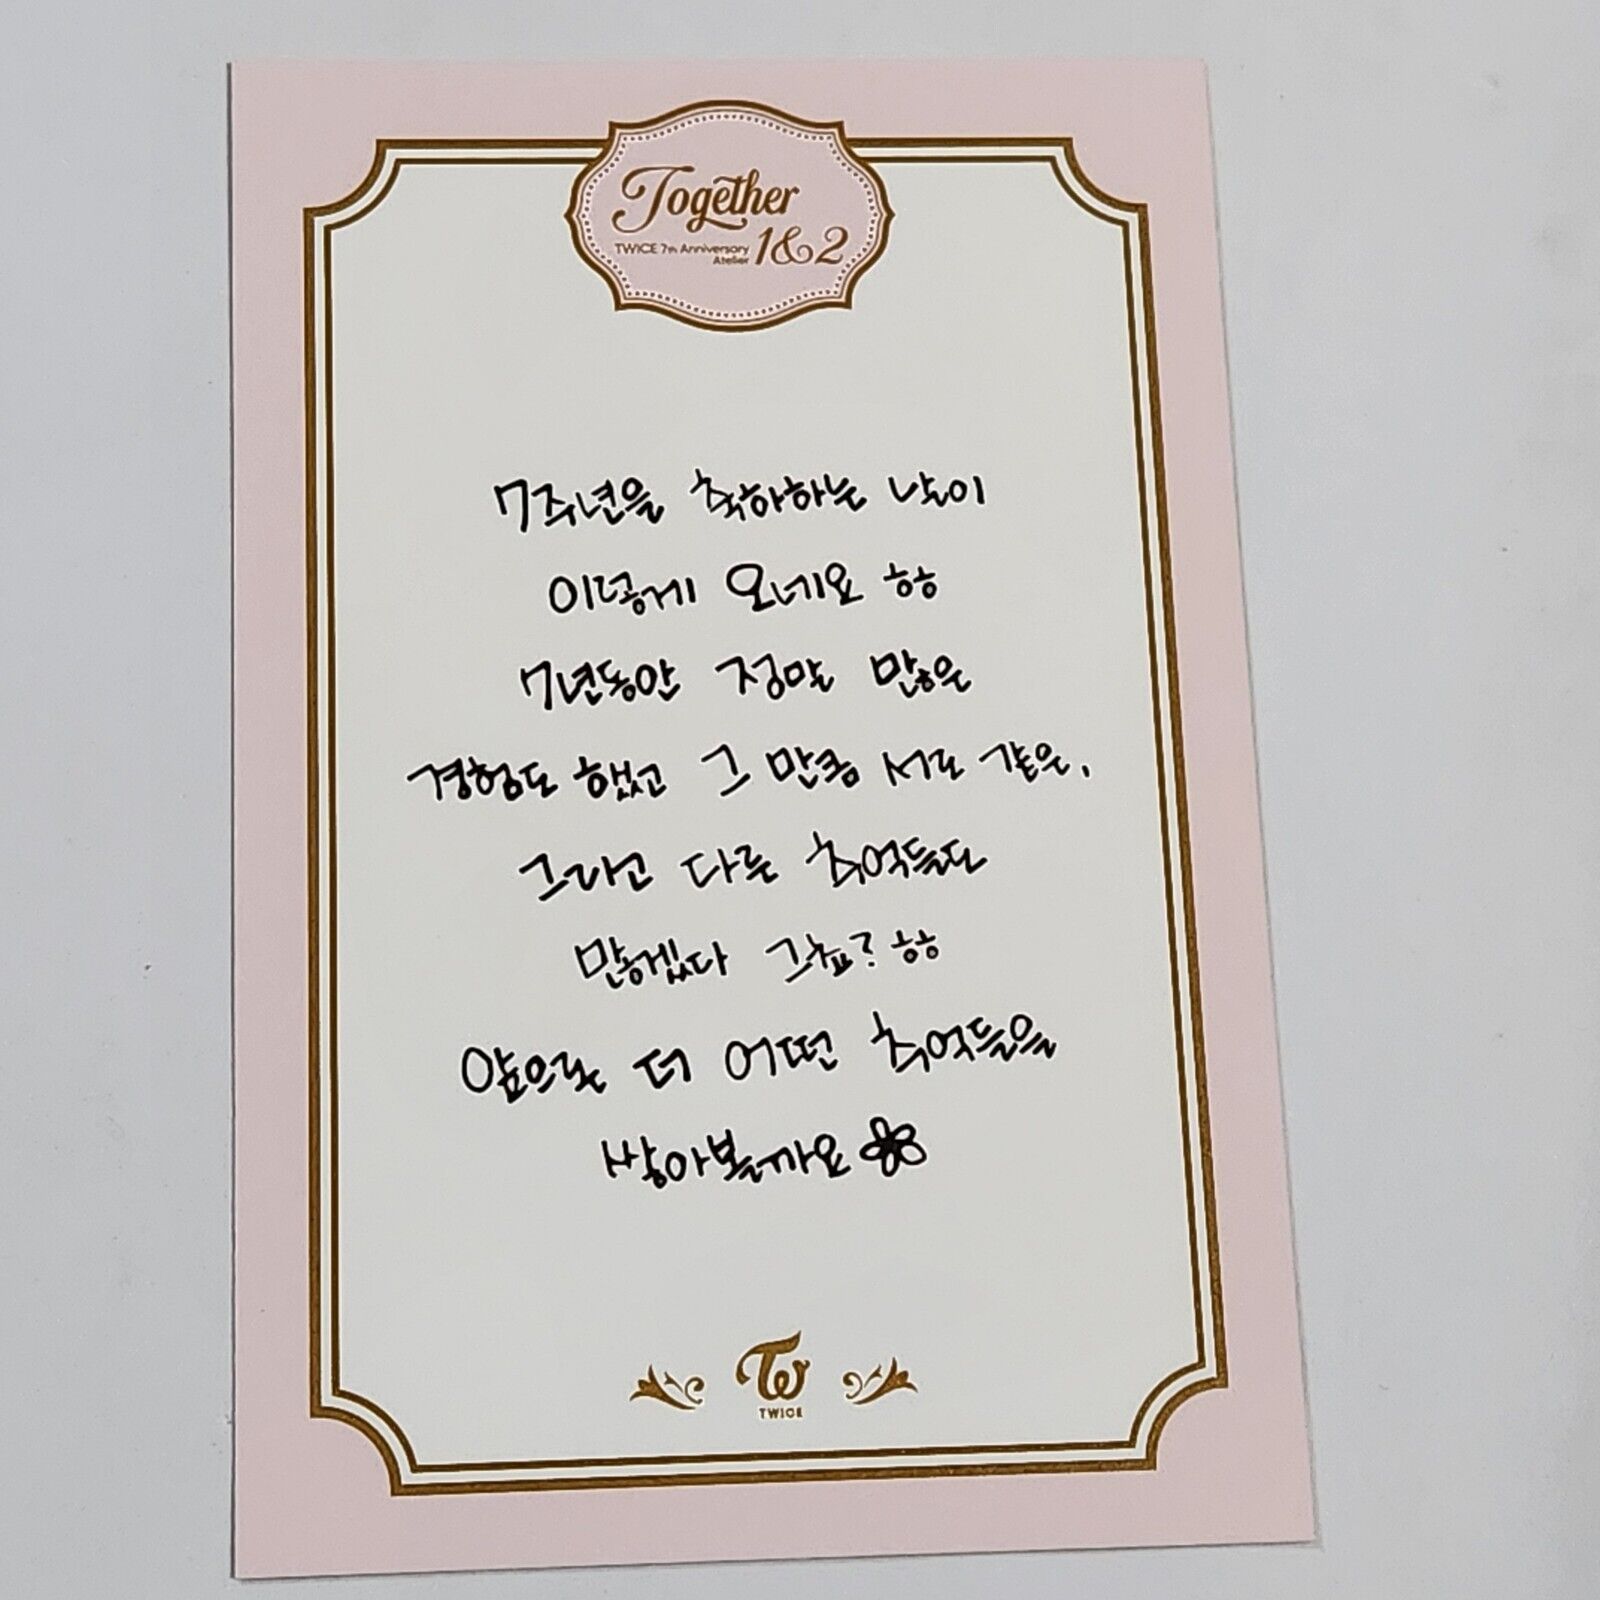 Together
TWICE 7th Anniversary
Atelier 1&2
7주년을 축하하는 날이
이렇게 오네요 ㅎㅎ
7년동안 정말 많은
경험도 했고 그 만큼 서로 같은,
그리고 다른 추억들도
많겠다 그쵸? ㅎㅎ
앞으로 더 어떤 추억들을
쌓아볼까요
TWICE